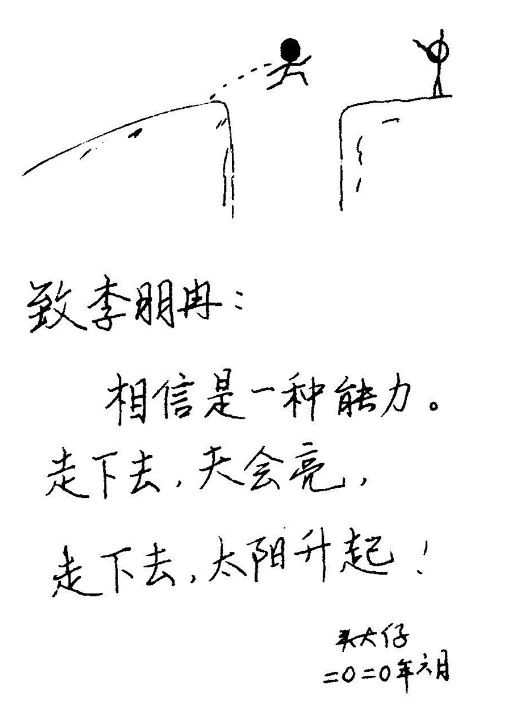 致李明冉：
相信是一种能力。
走下去，天会亮，
走下去，太阳升起！
头大仔
二〇二〇年六月